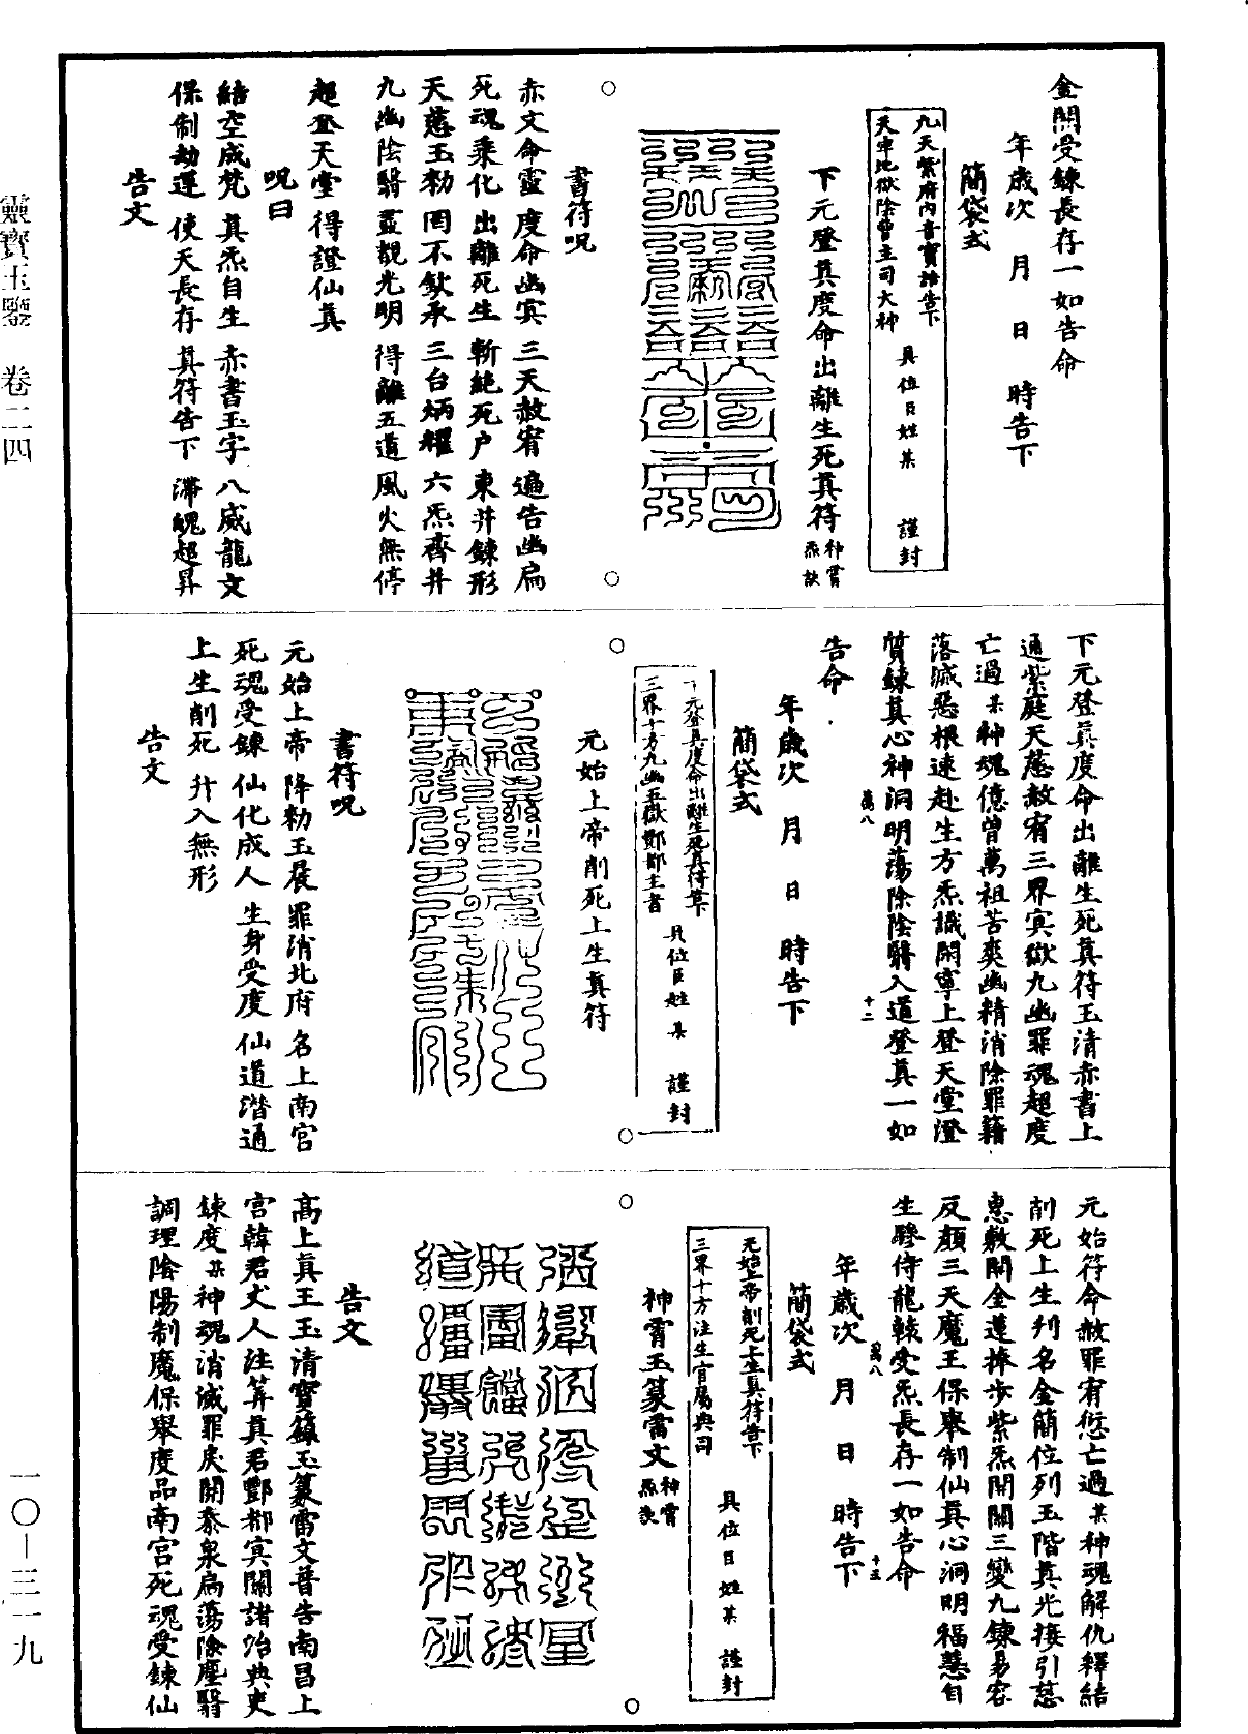 金闕受鍊長存一如告命
年歲次　月　日　時告下
簡袋式
九天紫府內音寶誥告下
天牢地獄陰曹主司大神
具位臣姓某　謹封
下元登真度命出離生死真符神霄炁訣
書符呪
赤文命靈　度命幽冥　三天赦宥　遍告幽扃
死魂乘化　出離死生　斬絕死户　東井鍊形
天慈玉勑　罔不欽承　三台炳耀　六炁齊并
九幽陰翳　靈觀光明　得離五道　風火無停
超登天堂　得證仙真
呪曰
結空成梵　真炁自生　赤書玉字　八威龍文
保制劫運　使天長存　真符告下　滯魄超昇
告文
下元登真度命出離生死真符玉清赤書上
通紫庭天慈赦宥三界冥獄九幽罪魂超度
亡過某神魂億曾萬祖苦爽幽精消除罪籍
落滅惡根速赴生方炁識閑寧上登天堂澄
質鍊真心神洞明蕩除陰翳入道登真一如
告命
萬八　十二
年歲次　月　日　時告下
簡袋式
下元登真度命出離生死真符告下
三界十方九幽五獄酆都主者
具位臣姓某　謹封
元始上帝削死上生真符
書符呪
元始上帝　降勑玉扆　罪消北府　名上南宮
死魂受鍊　仙化成人　生身受度　仙道潛通
上生削死　升入無形
告文
元始符命赦罪宥愆亡過某神魂解仇釋結
削死上生刋名金簡位列玉階真光接引慈
惠敷開金蓮捧步紫炁開關三變九鍊易容
反顏三天魔王保舉制仙真心洞明福慧自
生驂侍龍轅受炁長存一如告命
萬八　十三
年歲次　月　日　時告下
簡袋式
元始上帝削死上生真符告下
三界十方注生官屬典司
具位臣姓某　謹封
神霄玉篆雷文神霄炁訣
告文
高上真王玉清寶籙玉篆雷文普告南昌上
宮韓君丈人注筭真君酆都冥關諸治典吏
鍊度某神魂消滅罪戾開泰泉扃蕩除塵翳
調理陰陽制魔保舉度品南宮死魂受鍊仙
靈寶玉鑒　卷二四
一〇—三一九